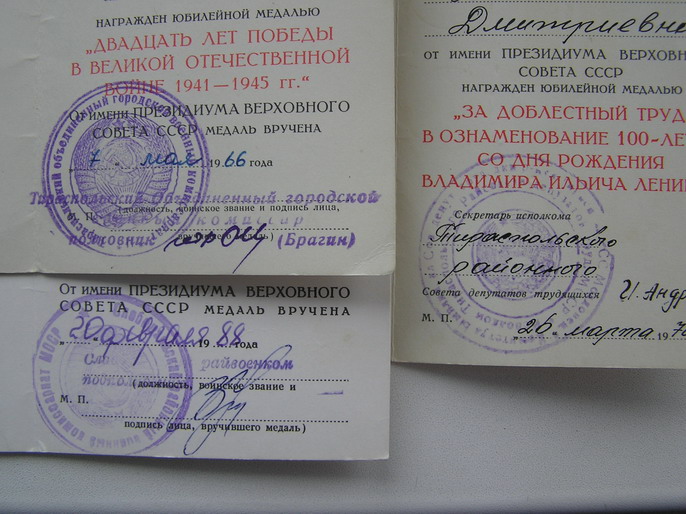 НАГРАЖДЕН ЮБИЛЕЙНОЙ МЕДАЛЬЮ
„ДВАДЦАТЬ ЛЕТ ПОБЕДЫ
В ВЕЛИКОЙ ОТЕЧЕСТВЕННОЙ
ВОЙНЕ 1941—1945 гг.“
От имени ПРЕЗИДИУМА ВЕРХОВНОГО
СОВЕТА СССР МЕДАЛЬ ВРУЧЕНА
„7„ мая 1966 года
Тираспольский Объединенный городской
М. П. (должность, воинское звание и подпись лица,
комиссар
полковник (Брагин)
От имени ПРЕЗИДИУМА ВЕРХОВНОГО
СОВЕТА СССР МЕДАЛЬ ВРУЧЕНА
„20 февраля 1988 года
райвоенком
подпол
(должность, воинское звание и
М. П.
подпись лица, вручившего медаль)
Дмитриевна
от имени ПРЕЗИДИУМА ВЕРХОВН
СОВЕТА СССР
НАГРАЖДЕН ЮБИЛЕЙНОЙ МЕДАЛЬЮ
„ЗА ДОБЛЕСТНЫЙ ТРУД
В ОЗНАМЕНОВАНИЕ 100-ЛЕ
СО ДНЯ РОЖДЕНИЯ
ВЛАДИМИРА ИЛЬИЧА ЛЕНИ
Секретарь исполкома
Тираспольского
районного
Совета депутатов трудящихся И. Андр
М. П.
„26„ марта 1970